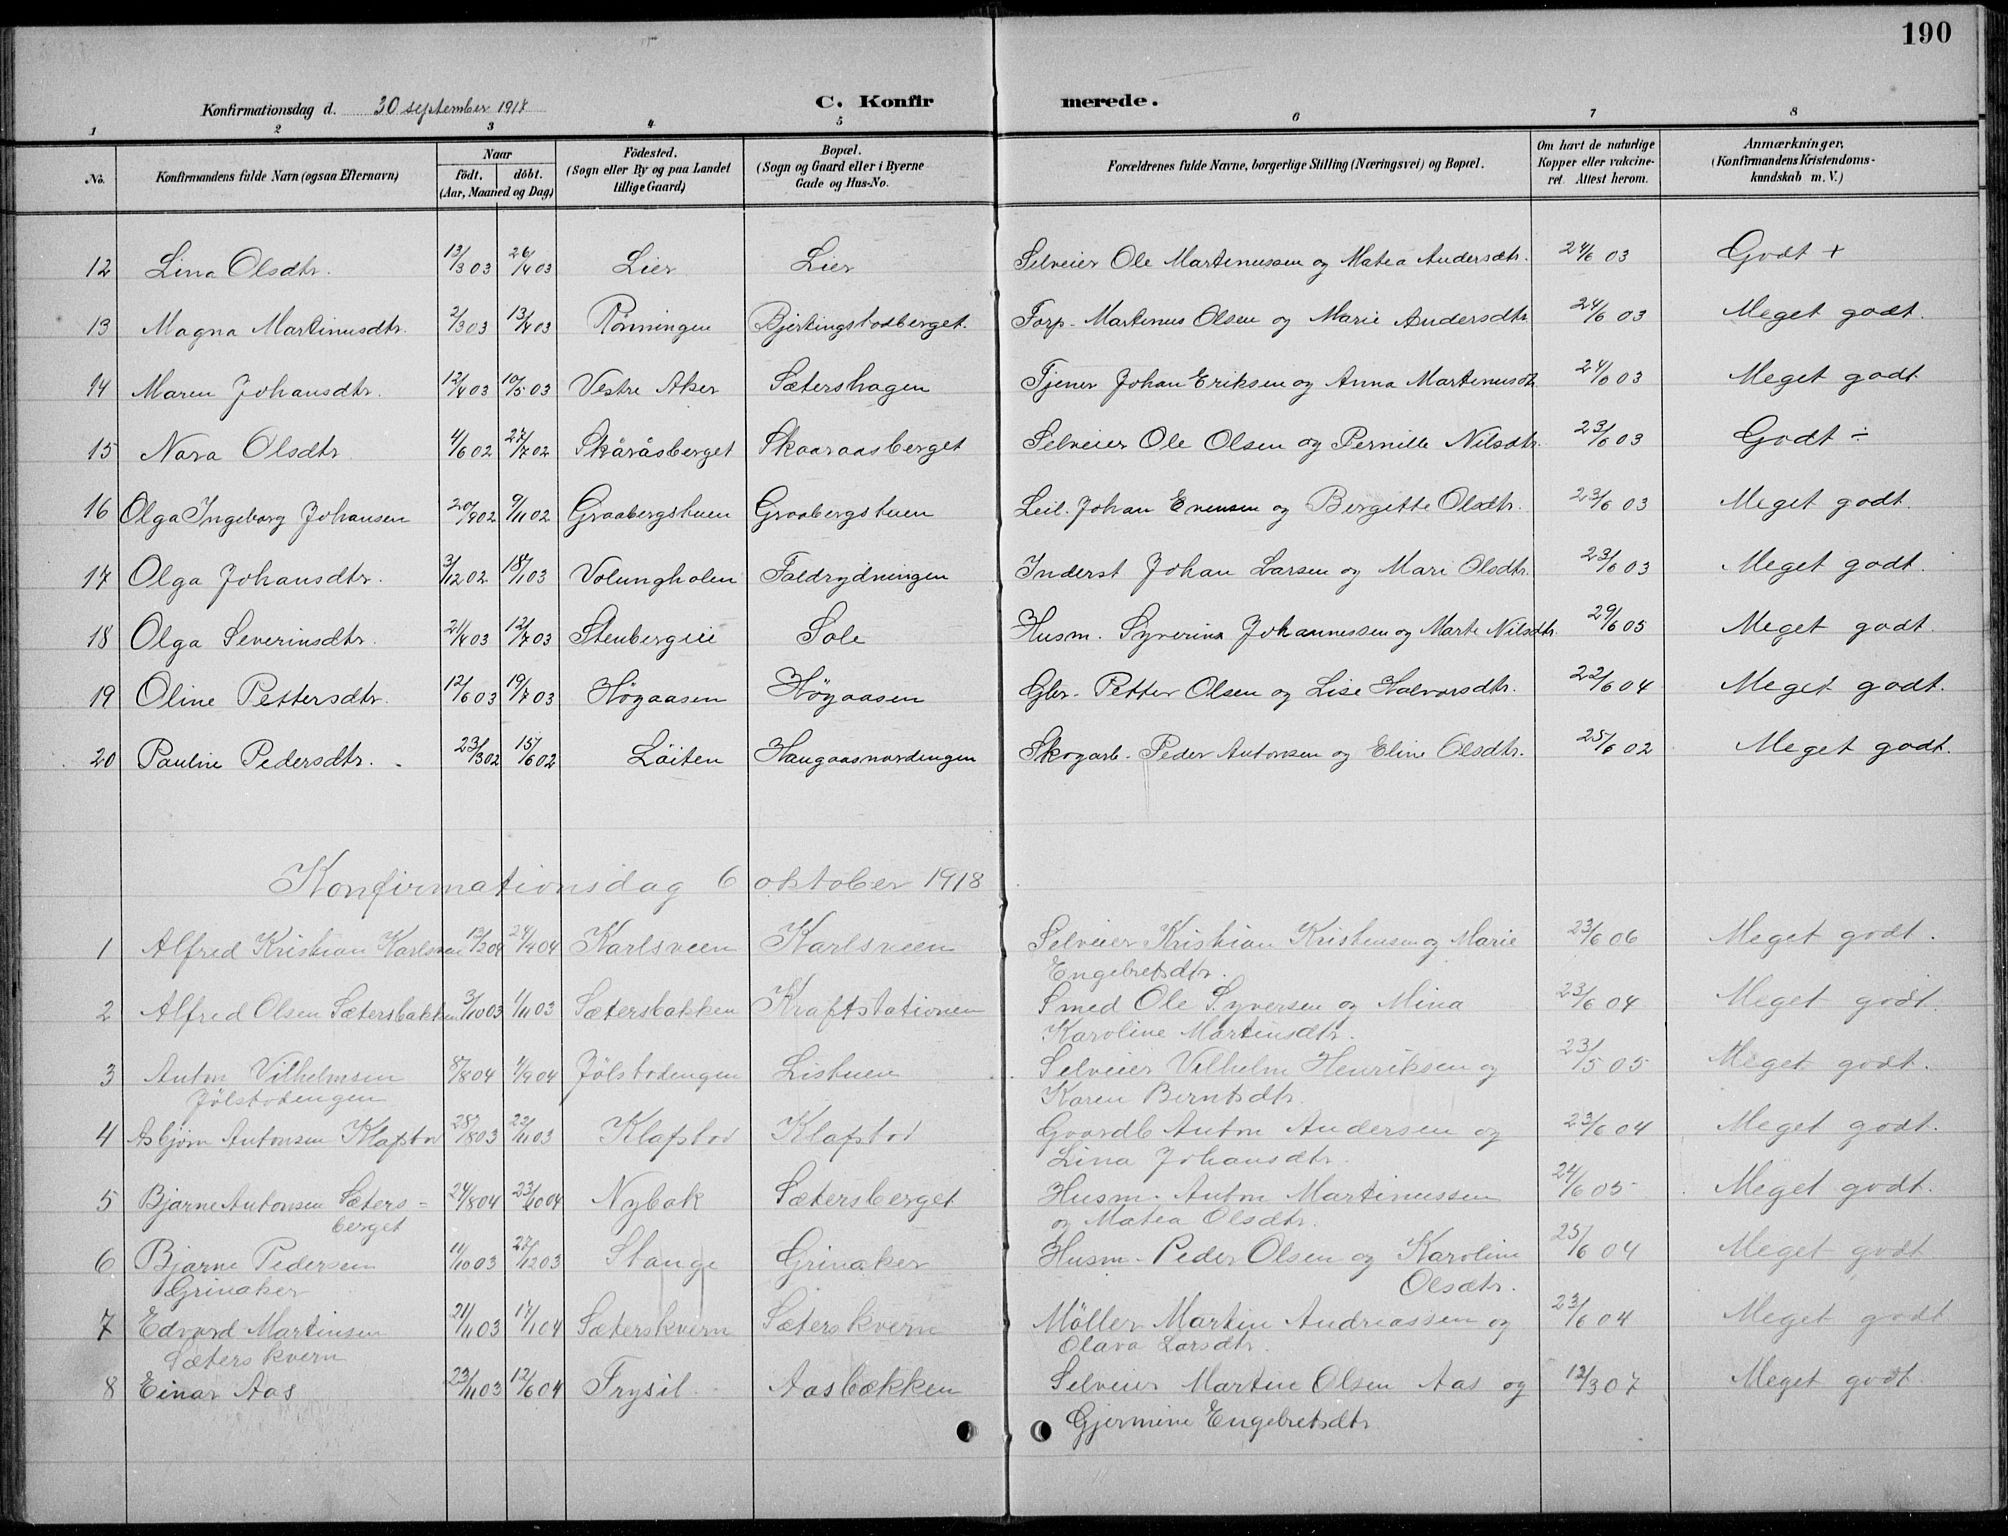 190
Konfirmationsdag d. 30 september 1918 C. Konfirmerede.
1 2 3 4 5 6 7 8
No. Konfirmandens fulde Navn (ogsaa Efternavn) Naar Födt. döbt. (Aar, Maaned og Dag) Födested. (Sogn eller By og paa Landet tillige Gaard) Bopæl. (Sogn og Gaard eller i Byerne Gade og Hus-No. Forældrenes fulde Navne, borgerlige Stilling (Næringsvei) og Bopæl. Om havt de naturlige Kopper eller vakcineret. Attest herom. Anmærkninger, (Konfirmandens Kristendomskundskab m. V.)
12 Lina Olsdtr. 13/3 03 26/4 03 Lier Lier Selveier Ole Martinussen og Matea Andersdtr. 24/6 03 Godt +
13 Magna Martinusdtr. 2/3 03 13/4 03 Rönningen Bjertingstadberget. Torp. Martinus Olsen og Marie Andersdtr. 24/6 03 Meget godt.
14 Maren Johansdtr. 12/4 03 10/5 03 Vestre Aker Sætershagen Tjener Johan Eriksen og Anna Martinusdtr. 24/6 03 Meget godt.
15 Nora Olsdtr. 4/6 02 27/7 02 Skåråsberget Skaaraasberget Selveier Ole Olsen og Pernille Nilsdtr. 23/6 03 Godt ÷
16 Olga Ingeborg Johansen 20/9 02 9/11 02 Graabergstuen Graabergstuen Leil. Johan Evensen og Bergitte Olsdtr. 23/6 03 Meget godt.
17 Olga Johansdtr. 3/12 02 18/1 03 Volungholen Faldrydningen Inderst Johan Larsen og Mari Olsdtr. 23/6 03 Meget godt.
18 Olga Severinsdtr. 21/4 03 12/7 03 Stenbergeie Sole Husm. Syverin Johannessen og Marte Nilsdtr. 29/6 05 Meget godt.
19 Oline Pettersdtr. 12/6 03 19/7 03 Högaasen Högaasen Gbr. Petter Olsen og Lise Halvorsdtr. 22/6 04 Meget godt.
20 Pauline Pedersdtr. 23/3 02 15/6 02 Löiten Haugaasnordengen Skogarb. Peder Antonsen og Eline Olsdtr. 25/6 02 Meget godt.
Konfirmationsdag 6 oktober 1918
1 Alfred Kristian Karlsveen 13/2 04 24/4 04 Karlsveen Karlsveen Selveier Kristian Kristensen og Marie 23/6 06 Meget godt.
Engebretsdtr.
2 Alfred Olsen Sætersbakken 3/10 03 1/11 03 Sætersbakken Kraftstationen Smed Ole Syversen og Mina 23/6 04 Meget godt.
Karoline Martinsdtr.
3 Anton Vilhelmsen 8/8 04 4/9 04 Jölstadengen Listuen Selveier Vilhelm Henriksen og 23/5 05 Meget godt.
Jölstadengen Karen Berntsdtr.
4 Asbjörn Antonsen Klafstad 28/8 03 22/11 03 Klafstad Klafstad Gaardb Anton Andersen og 23/6 04 Meget godt.
Lina Johansdtr.
5 Bjarne Antonsen Sæters- 24/8 04 23/10 04 Nybak Sætersberget Husm. Anton Martinussen 24/6 05 Meget godt.
berget og Matea Olsdtr.
6 Bjarne Pedersen 11/10 03 27/12 03 Stange Grinaker Husm. Peder Olsen og Karoline 25/6 04 Meget godt
Grinaker Olsdtr.
7 Edvard Martinsen 21/11 03 17/1 04 Sæterskvern Sæterskvern Möller Martin Andreassen og 23/6 04 Meget godt
Sæterskvern Olava Larsdtr.
8 Einar Aas 23/11 03 12/6 04 Trysil Aasbækken Selveier Martin Olsen Aas og 12/3 07 Meget godt.
Gjermine Engebretsdtr.